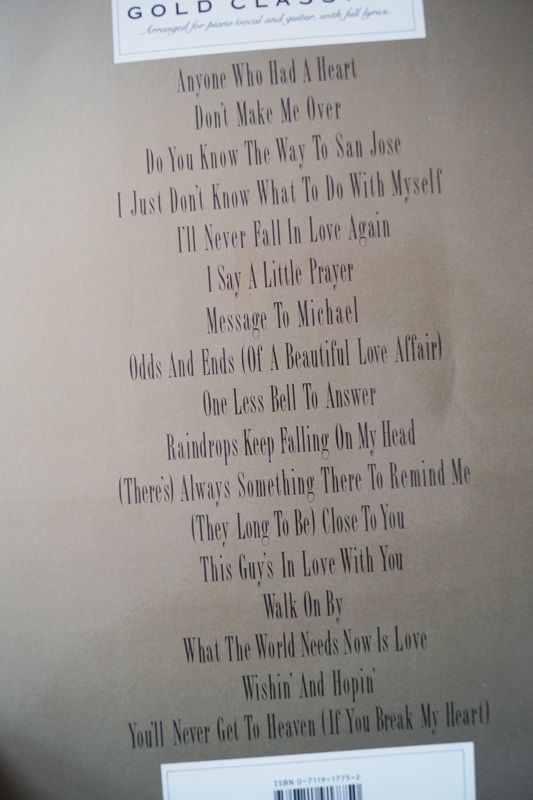 GOLD CLASS
Arranged for piano/vocal and guitar, with full lyrics.
Anyone Who Had A Heart
Don't Make Me Over
Do You Know The Way To San Jose
I Just Don't Know What To Do With Myself
I'll Never Fall In Love Again
I Say A Little Prayer
Message To Michael
Odds And Ends (Of A Beautiful Love Affair)
One Less Bell To Answer
Raindrops Keep Falling On My Head
(There's) Always Something There To Remind Me
(They Long To Be) Close To You
This Guy's In Love With You
Walk On By
What The World Needs Now Is Love
Wishin' And Hopin'
You'll Never Get To Heaven (If You Break My Heart)
ISBN 0-7119-1775-2